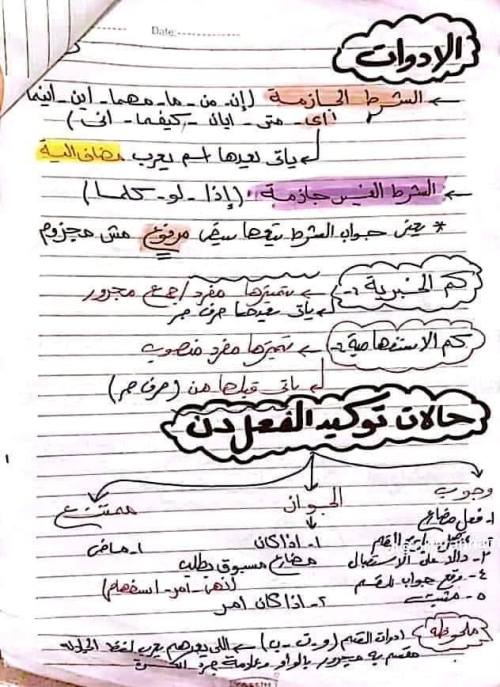 Date:
الادوات
← الشرط الجازمة (إن - من - ما - مهما - اين - اينما
أى - متى - ايان - كيفما - انى)
ياتى بعدها اسم يعرب مضاف اليه
← الشرط الغير جازمة (إذا - لو - كلما)
* يعنى جواب الشرط بتاعها مرفوع مش مجزوم
كم الخبرية :- ← تمييزها مفرد / جمع مجرور
ياتى بعدها حرف جر
كم الاستفهامية :- ← تمييزها مفرد منصوب
ياتى قبلها من (حرف جر)
حالات توكيد الفعل
وجوب
الجواز
ممتنع
١- فعل مضارع
١- اذا كان
١- ماضى
مضارع مسبوق بطلب
٣- دالا على الاستقبال
(نهى - امر - استفهام)
٤- جواب القسم
٢- اذا كان امر
٥- مثبت
ملحوظة
ادوات القسم (و - ت - ب) ← اللى بعدهم يعرب لفظ الجلالة
مقسم به مجرور بالواو وعلامة جره الكسرة